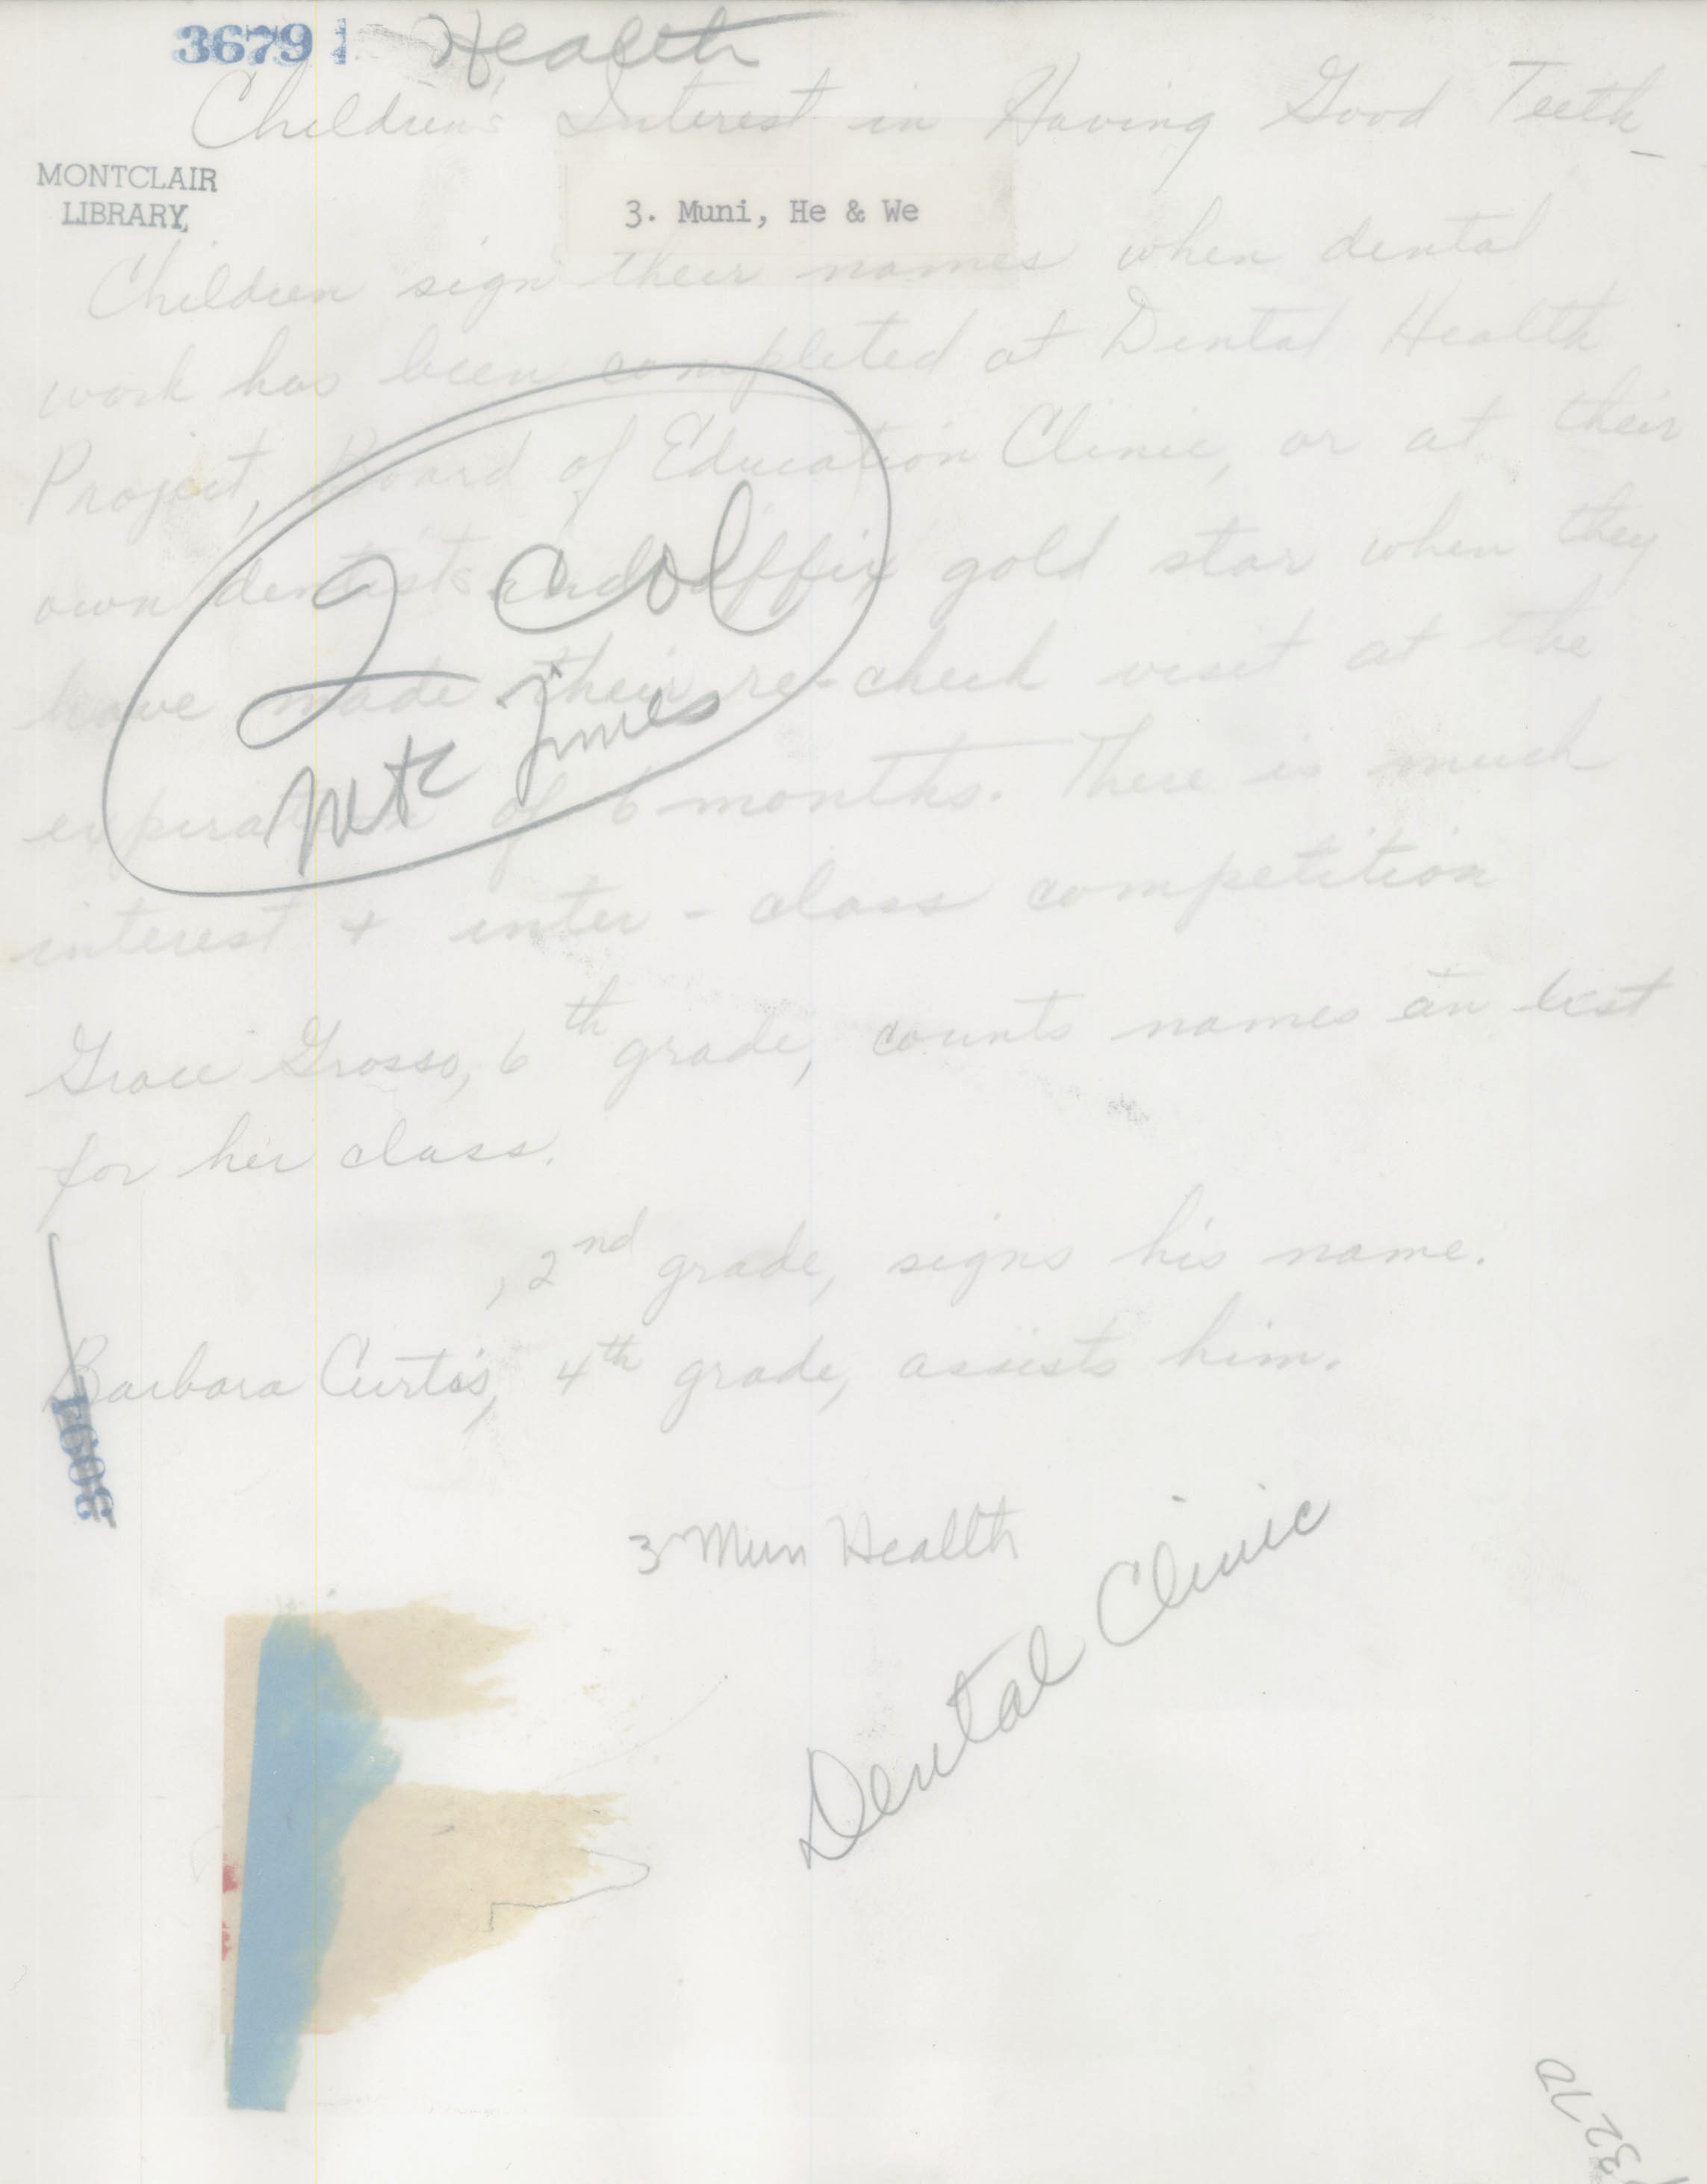 3679
Health
Children's Interest in Having Good Teeth
MONTCLAIR
LIBRARY,
3. Muni, He & We
Children sign their names when dental
work has been completed at Dental Health
Project, Board of Education Clinic, or at their
own dentists and affix gold star when they
have made their re-check visit at the
expiration of 6 months. There is much
interest + inter-class competition
2 col
Mtc Times
Grace Grosso, 6th grade, counts names on list
for her class.
, 2nd grade, signs his name.
Barbara Curtis, 4th grade, assists him.
3091
3 Mun Health
Dental Clinic